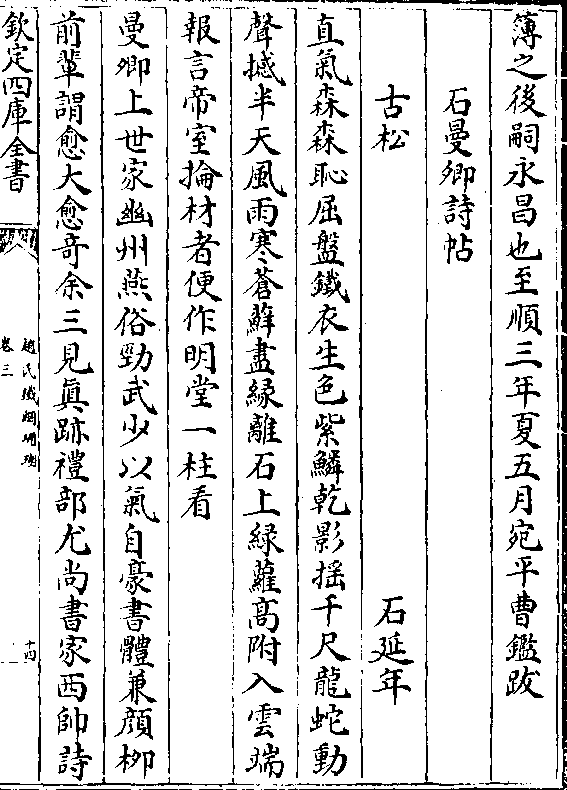 簿之後嗣永昌也至順三年夏五月宛平曹鑑跋
石曼卿詩帖
古松 石延年
直氣森森恥屈盤鐵衣生色紫鱗乾影揺千尺龍蛇動
聲撼半天風雨寒蒼蘚盡緣離石上綠蘿髙附入雲端
報言帝室掄材者便作明堂一柱看
曼卿上世家幽州燕俗勁武少以氣自豪書體兼顔栁
前輩謂愈大愈竒余三見真跡禮部尤尚書家西帥詩
欽定四庫全書
趙氏鐵網珊瑚
卷三
十四